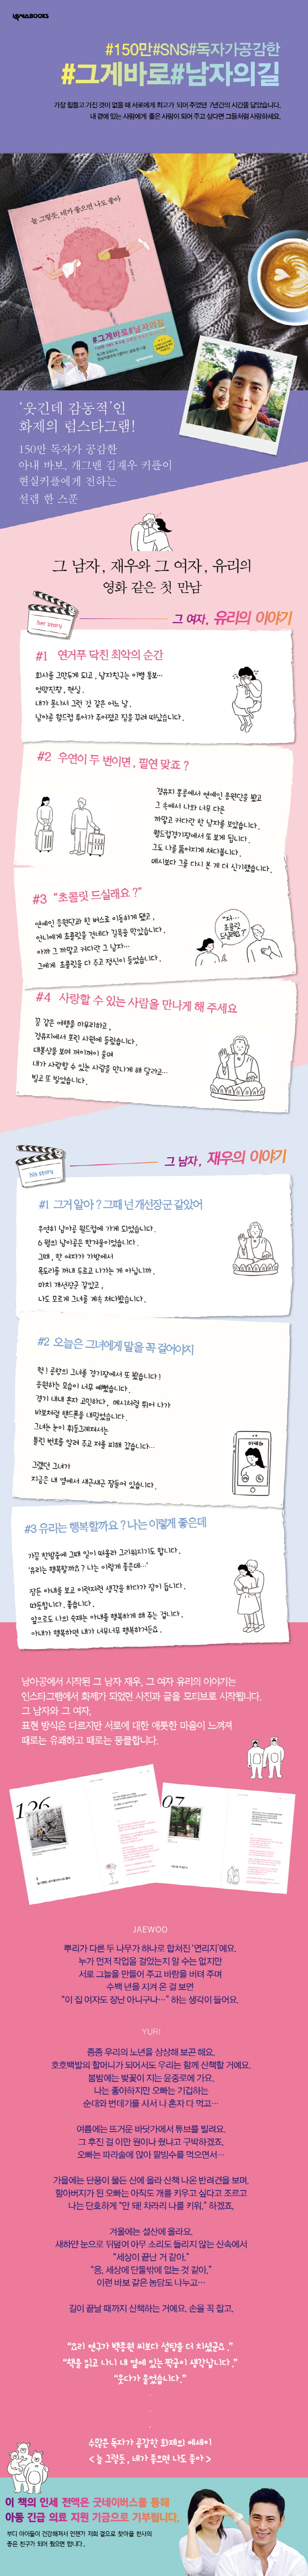 넥서스BOOKS
#150만#SNS#독자가공감한
#그게바로#남자의길
가장 힘들고 가진 것이 없을 때 서로에게 최고가 되어 주었던 7년간의 시간을 담았습니다.
내 곁에 있는 사람에게 좋은 사람이 되어 주고 싶다면 그들처럼 사랑하세요.
늘 그렇듯, 네가 좋으면 나도 좋아
#그게바로#남자의길
‘웃긴데 감동적’인
화제의 럽스타그램!
150만 독자가 공감한
아내 바보, 개그맨 김재우 커플이
현실커플에게 전하는
설렘 한 스푼
그 남자, 재우와 그 여자, 유리의
영화 같은 첫 만남
her story
그 여자, 유리의 이야기
#1 연거푸 닥친 최악의 순간
회사를 그만두게 되고, 남자친구는 이별 통보…
엉망진창, 핵심.
내가 못나서 그런 것 같은 어느 날,
남아공 월드컵 투어가 주어졌고 짐을 꾸려 떠났습니다.
#2 우연이 두 번이면, 필연 맞죠?
경유지 홍콩에서 연예인 응원단을 봤고
그 속에서 나와 너무 다른
까맣고 커다란 한 남자를 보았습니다.
월드컵경기장에서 또 보게 됩니다.
그도 나를 뚫어지게 쳐다봅니다.
메시보다 그를 다시 본 게 더 신기했습니다.
#3 “초콜릿 드실래요?”
연예인 응원단과 한 버스로 이동하게 됐고,
언니에게 초콜릿을 건네다 깜짝을 막았습니다.
아까 그 까맣고 커다란 그 남자…
그에게 초콜릿을 다 주고 정신이 들었습니다.
“저…
초콜릿
드실래요?”
#4 사랑할 수 있는 사람을 만나게 해 주세요
꿈 같은 여행을 마무리하고,
경유지에서 들린 사원에 들렀습니다.
대불상을 보며 꺼이꺼이 울며
내가 사랑할 수 있는 사람을 만나게 해 달라고…
빌고 또 빌었습니다.
his story
그 남자, 재우의 이야기
#1 그거 알아? 그때 넌 개선장군 같았어
우연히 남아공 월드컵에 가게 되었습니다.
6월의 남아공은 한겨울이었습니다.
그때, 한 여자가 가방에서
목도리를 꺼내 두르고 나가는 게 아닙니까.
마치 개선장군 같았고,
나도 모르게 그녀를 계속 쳐다봤습니다.
#2 오늘은 그녀에게 말을 꼭 걸어야지
헉! 공항의 그녀를 경기장에서 또 봤습니다!
응원하는 모습이 너무 예뻤습니다.
경기 내내 혼자 고민하다, 메시처럼 뛰어 나가
바보처럼 핸드폰을 내밀었습니다.
그녀는 눈이 휘둥그레져서는
틀린 번호를 알려 주고 저를 피해 갔습니다…
그랬던 그녀가
지금은 내 옆에서 새근새근 잠들어 있습니다.
#3 유리는 행복할까요? 나는 이렇게 좋은데
가끔 한밤중에 그때 일이 떠올라 그리워지기도 합니다.
‘유리는 행복할까요? 나는 이렇게 좋은데…’
잠든 아내를 보고 이런저런 생각을 하다가 잠이 듭니다.
따듯합니다. 좋습니다.
앞으로도 나의 숙제는 아내를 행복하게 해 주는 겁니다.
아내가 행복하면 내가 너무너무 행복하거든요.
남아공에서 시작된 그 남자 재우, 그 여자 유리의 이야기는
인스타그램에서 화제가 되었던 사진과 글을 모티브로 시작됩니다.
그 남자와 그 여자,
표현 방식은 다르지만 서로에 대한 애틋한 마음이 느껴져
때로는 유쾌하고 때로는 뭉클합니다.
126
07
JAEWOO
뿌리가 다른 두 나무가 하나로 합쳐진 ‘연리지’예요.
누가 먼저 작업을 걸었는지 알 수는 없지만
서로 그늘을 만들어 주고 바람을 버텨 주며
수백 년을 지켜 온 걸 보면
“이 집 여자도 장난 아니구나…” 하는 생각이 들어요.
YURI
종종 우리의 노년을 상상해 보곤 해요.
호호백발의 할머니가 되어서도 우리는 함께 산책할 거예요.
봄밤에는 벚꽃이 지는 윤중로에 가요.
나는 좋아하지만 오빠는 기겁하는
순대와 번데기를 사서 나 혼자 다 먹고…
여름에는 뜨거운 바닷가에서 튜브를 빌려요.
그 후진 걸 이만 원이나 줬냐고 구박하겠죠.
오빠는 파라솔에 앉아 팥빙수를 먹으면서…
가을에는 단풍이 물든 산에 올라 산책 나온 반려견을 보며,
할아버지가 된 오빠는 아직도 개를 키우고 싶다고 조르고
나는 단호하게 “안 돼! 차라리 나를 키워,” 하겠죠.
겨울에는 설산에 올라요.
새하얀 눈으로 뒤덮여 아무 소리도 들리지 않는 산속에서
“세상이 끝난 거 같아.”
“응, 세상에 단둘밖에 없는 것 같아.”
이런 바보 같은 농담도 나누고…
길이 끝날 때까지 산책하는 거예요. 손을 꼭 잡고.
“요리 연구가 백종원 씨보다 설탕을 더 치셨군요.”
“책을 읽고 나니 내 옆에 있는 짝궁이 생각납니다.”
“웃다가 울었습니다.”
수많은 독자가 공감한 화제의 에세이
<늘 그렇듯, 네가 좋으면 나도 좋아>
이 책의 인세 전액은 굿네이버스를 통해
아동 긴급 의료 지원 기금으로 기부됩니다.
부디 아이들이 건강해져서 언젠가 저희 곁으로 찾아올 천사의
좋은 친구가 되어 줬으면 합니다.